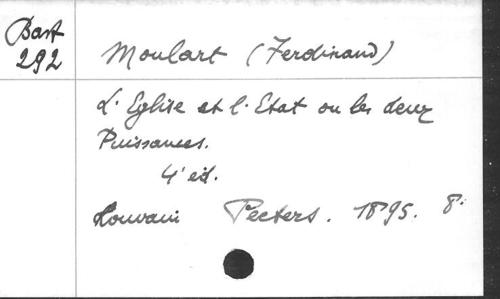 Bast
292
Moulart (Ferdinand)
L'Eglise et l'Etat ou les deux
Puissances.
4' éd.
Louvain Peeters. 1895. 8.